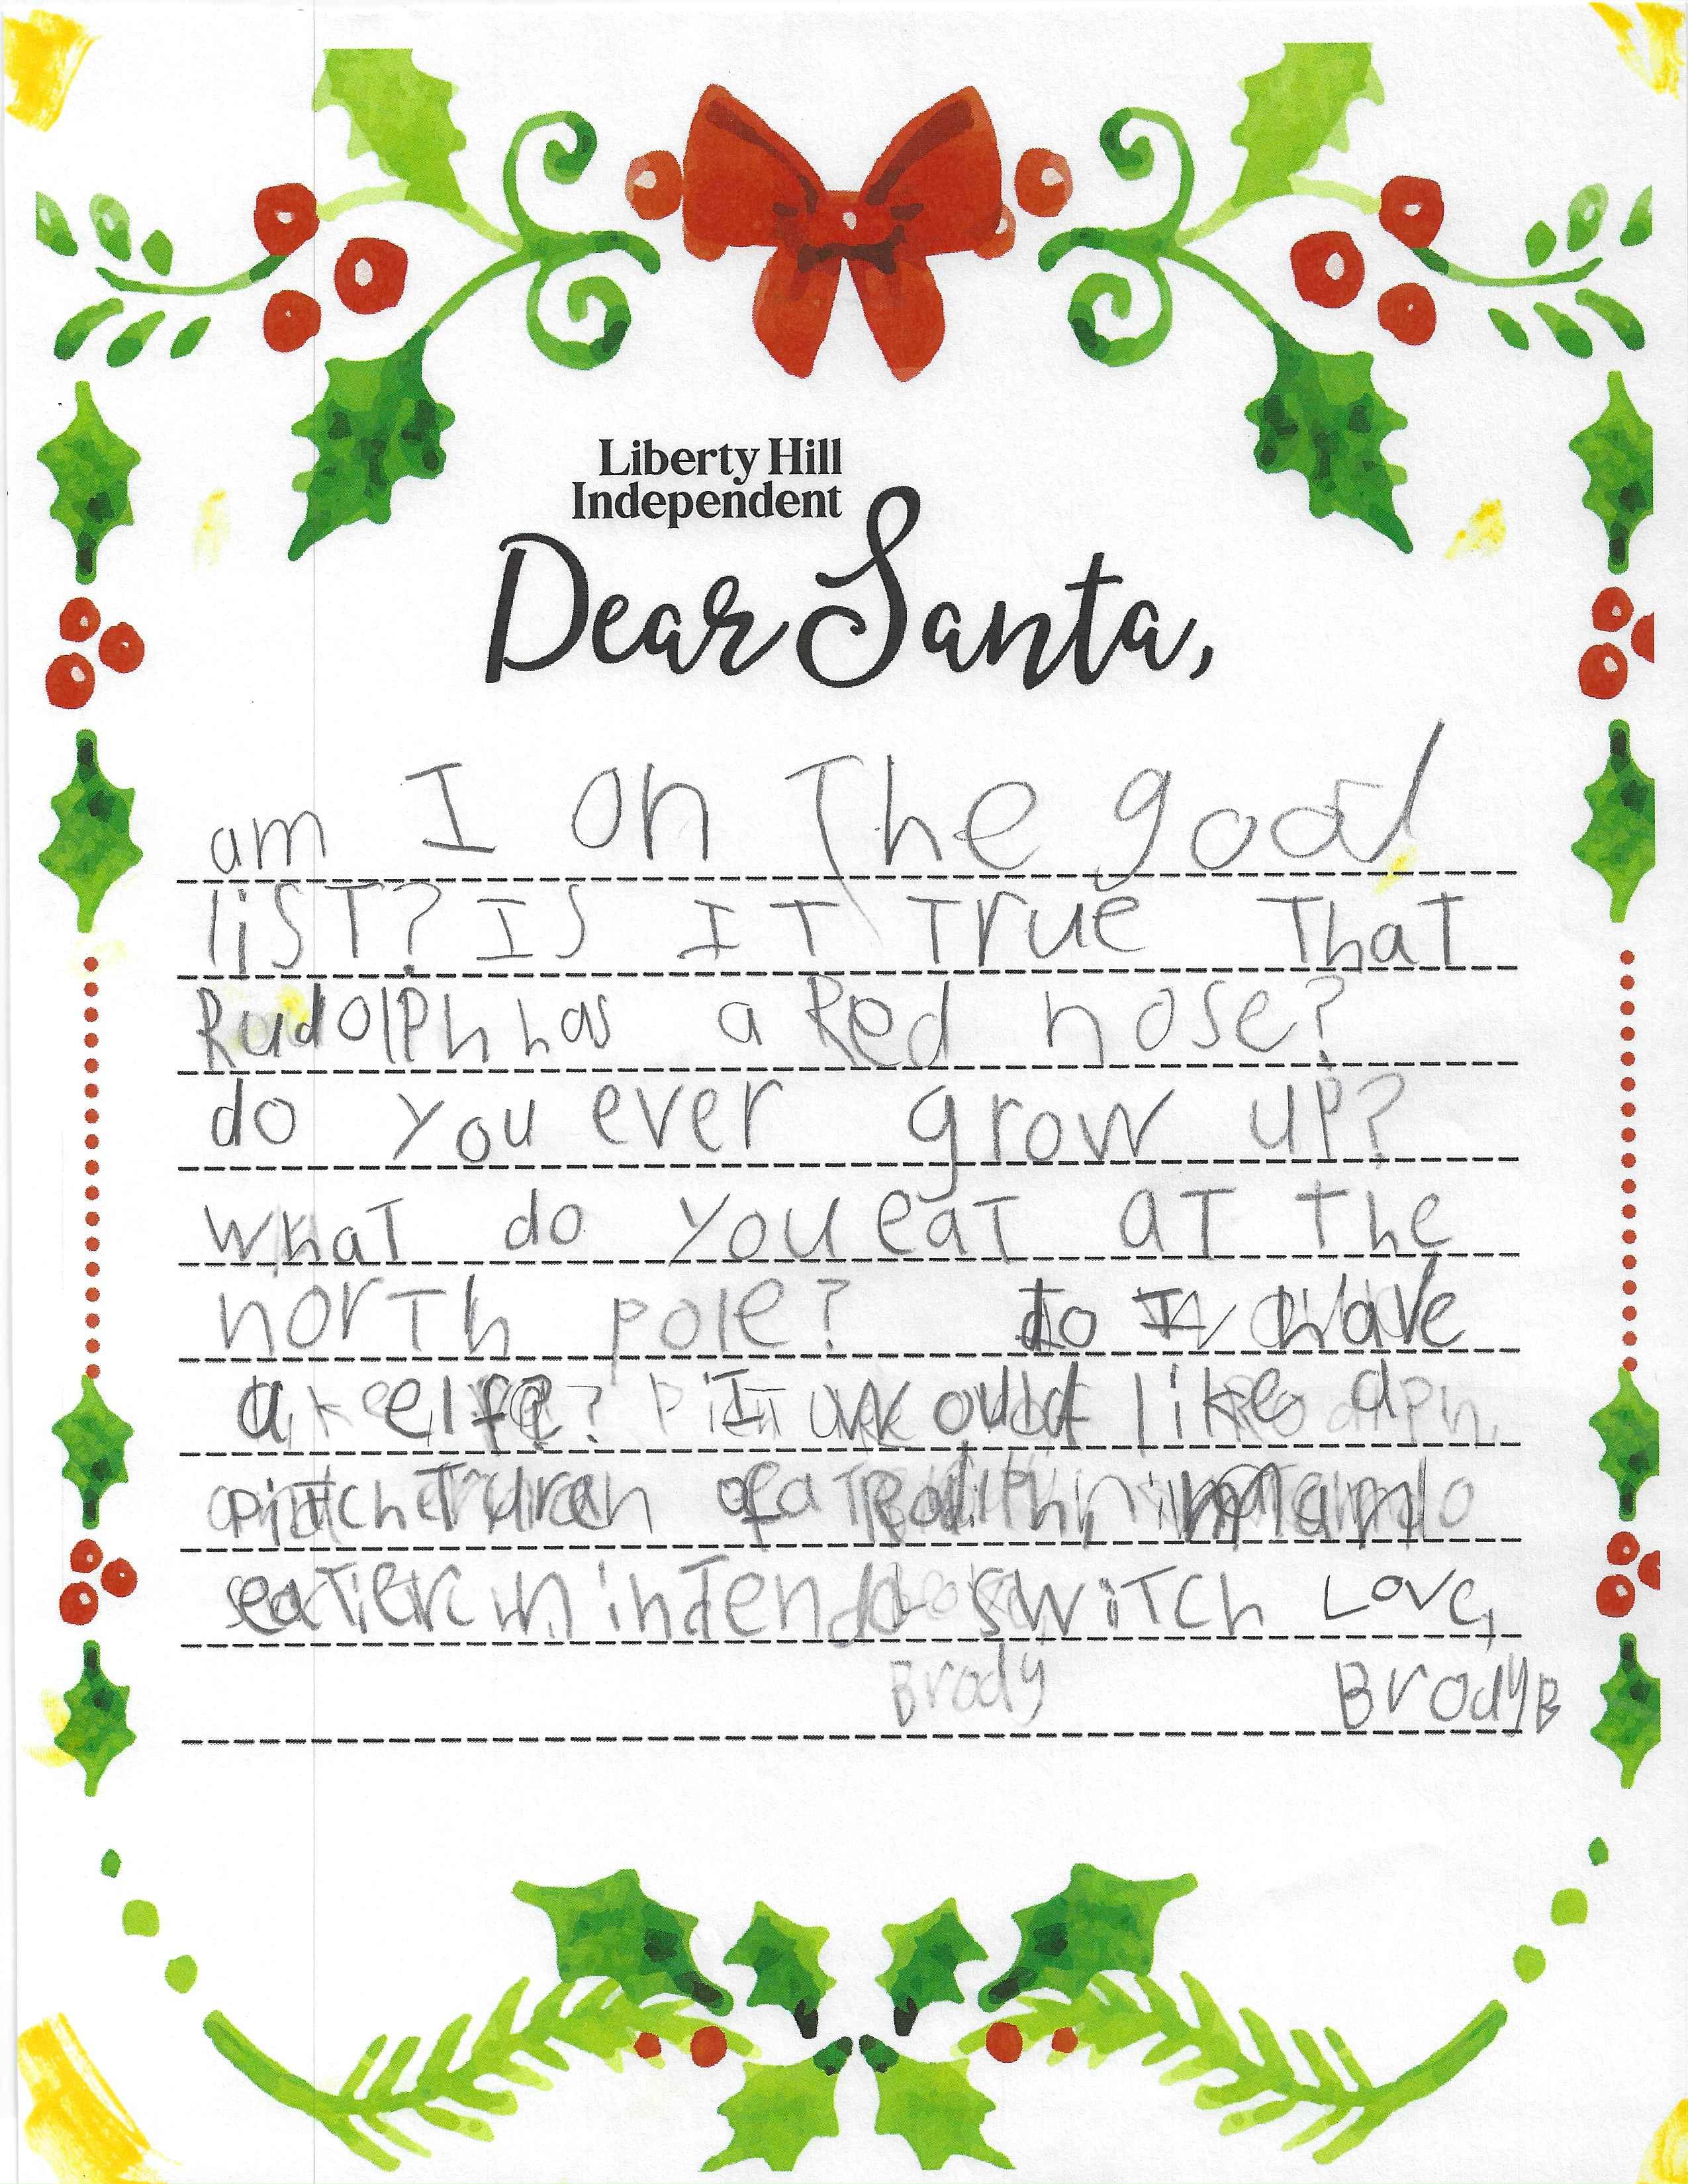 Liberty Hill
Independent
Dear Santa,
am I on The good
liST? IS IT True That
RudolPh has a Red nose?
do you ever grow up?
whaT do you eaT aT the
norTh pole? do I have
a elf? I would like a
picture of
nintendo switch Love,
Brody BrodyB